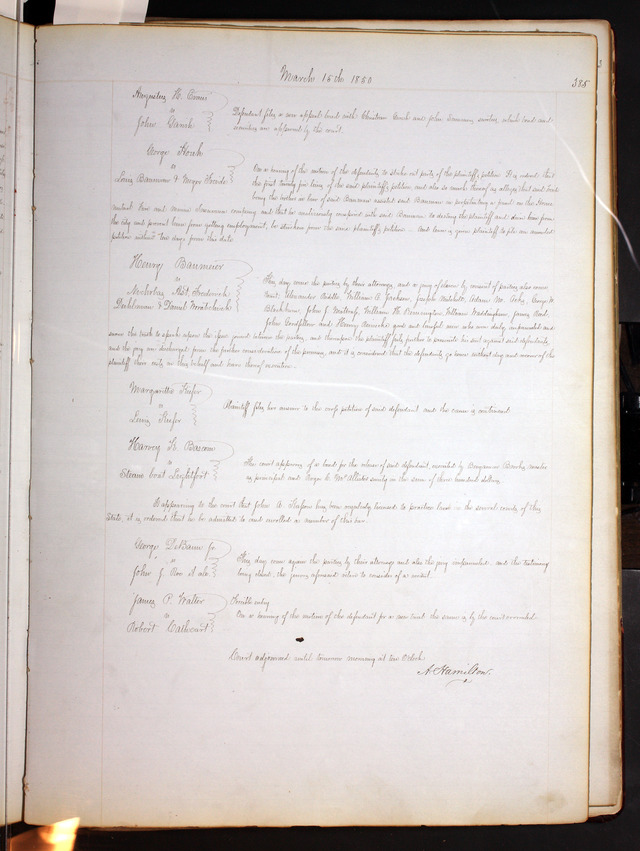 March 15th 1850
385
Augustus H. Evans
vs
John Gansh
Defendant files a new appeal bond with Christian and John sureties, which bond and
sureties are approved by the court.
George Houk
vs
Louis Baumeier &
On a hearing of the motion of the defendants to strike out parts of the plaintiff's petition. It is ordered that
the first twenty five lines of the said plaintiff's petition and also so much thereof as alleges that said
being the brother in law of said Baumeier assisted said Baumeier in perpetrating a fraud on the Home
Mutual Fire and Marine Insurance company and that he maliciously conspired with said Baumeier to destroy the plaintiff and drive him from
the city and prevent him from getting employment, be stricken from the said plaintiff's petition. And leave is given plaintiff to file an amended
petition within ten days from this date.
Henry Baumeier
vs
Nicholas Frederick
& Daniel
This day come the parties by their attorneys, and a jury of
Alexander Riddle, William B. Jackson, Joseph Mitchell, Adam
Blackburn, John J. Metcalf, William H. Pennington, William Waddingham, James
John and Henry good and lawful men who were duly impanneled and
sworn the truth to speak upon the issue joined between the parties, and thereupon the plaintiff fails further to prosecute his suit against said defendants,
and the jury are discharged from the further consideration of the premises, and it is considered that the defendants go hence without day and recover of the
plaintiff their costs in this behalf and have thereof execution.
Margaretta Kiefer
vs
Louis Kiefer
Plaintiff files her answer to the cross petition of said defendant and the cause is continued.
Harvey H. Bascom
vs
Steam boat Lightfoot
The court approves of a bond for the release of said defendant, executed by Benjamin
as principal and George C. McAllister surety in the sum of three hundred dollars.
It appearing to the court that John A. has been regularly licensed to practice law in the several courts of this
State, it is ordered that he be admitted to and enrolled a member of this bar.
George DeBaun Jr.
vs
John J. Roe et als.
This day come again the parties by their attorneys and also the jury impanneled, and the testimony
being closed, the jurors aforesaid retire to consider of a verdict.
James P. Walter
vs
Robert Cathcart
Forcible entry
On a hearing of the motion of the defendant for a new trial the same is by the court overruled.
Court adjourned until tomorrow morning at ten O'clock.
A. Hamilton.